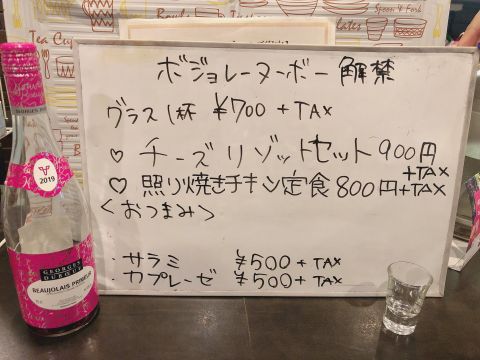 ボジョレーヌーボー解禁
グラス1杯 ¥700 + TAX
♡ チーズリゾットセット 900円
+TAX
♡ 照り焼きチキン定食 800円+TAX
<おつまみ>
・サラミ ¥500 + TAX
・カプレーゼ ¥500 + TAX
2019
GEORGES
DUBOEUF
BEAUJOLAIS PRIMEUR
Tea Cup
Bowls
Plates
Spoon & Fork